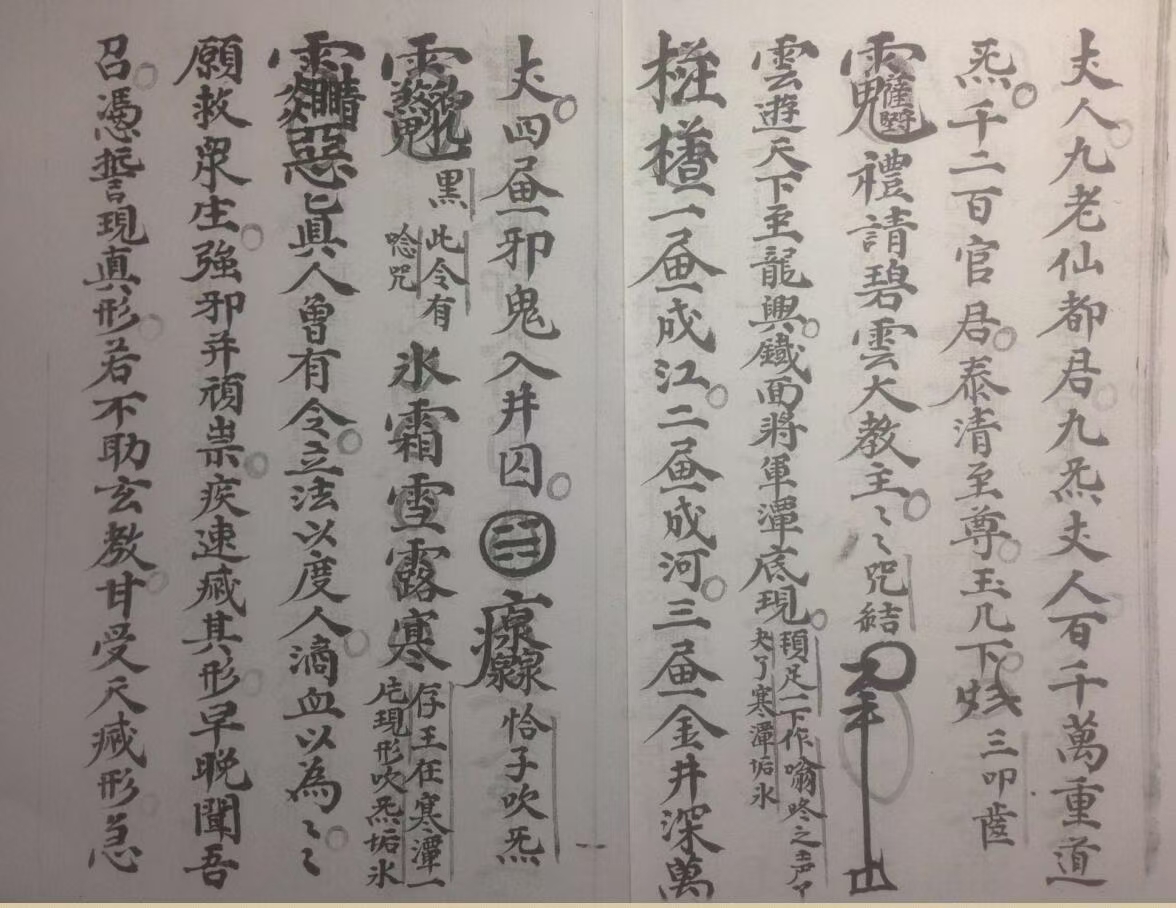 丈人九老仙都君九炁丈人百千萬重道
炁千二百官君泰清至尊玉几下 三叩齒
禮請碧雲大教主〻〻咒結
雲遊天下至龍興鐵面將軍潭底現 足一下作嗡咚之声
寒潭垢氷
一畐成江二畐成河三畐金井深萬
丈四畐邪鬼入井囚 恰子吹炁
黑 此令有唸咒 氷霜雪露寒 存王在寒潭一 現形吹炁垢氷
惡〻真人曾有令立法以度人滴血以為〻〻
願救衆生強邪并頑祟疾速滅其形早晚聞吾
召憑誓現真形若不助玄教甘受天滅形急